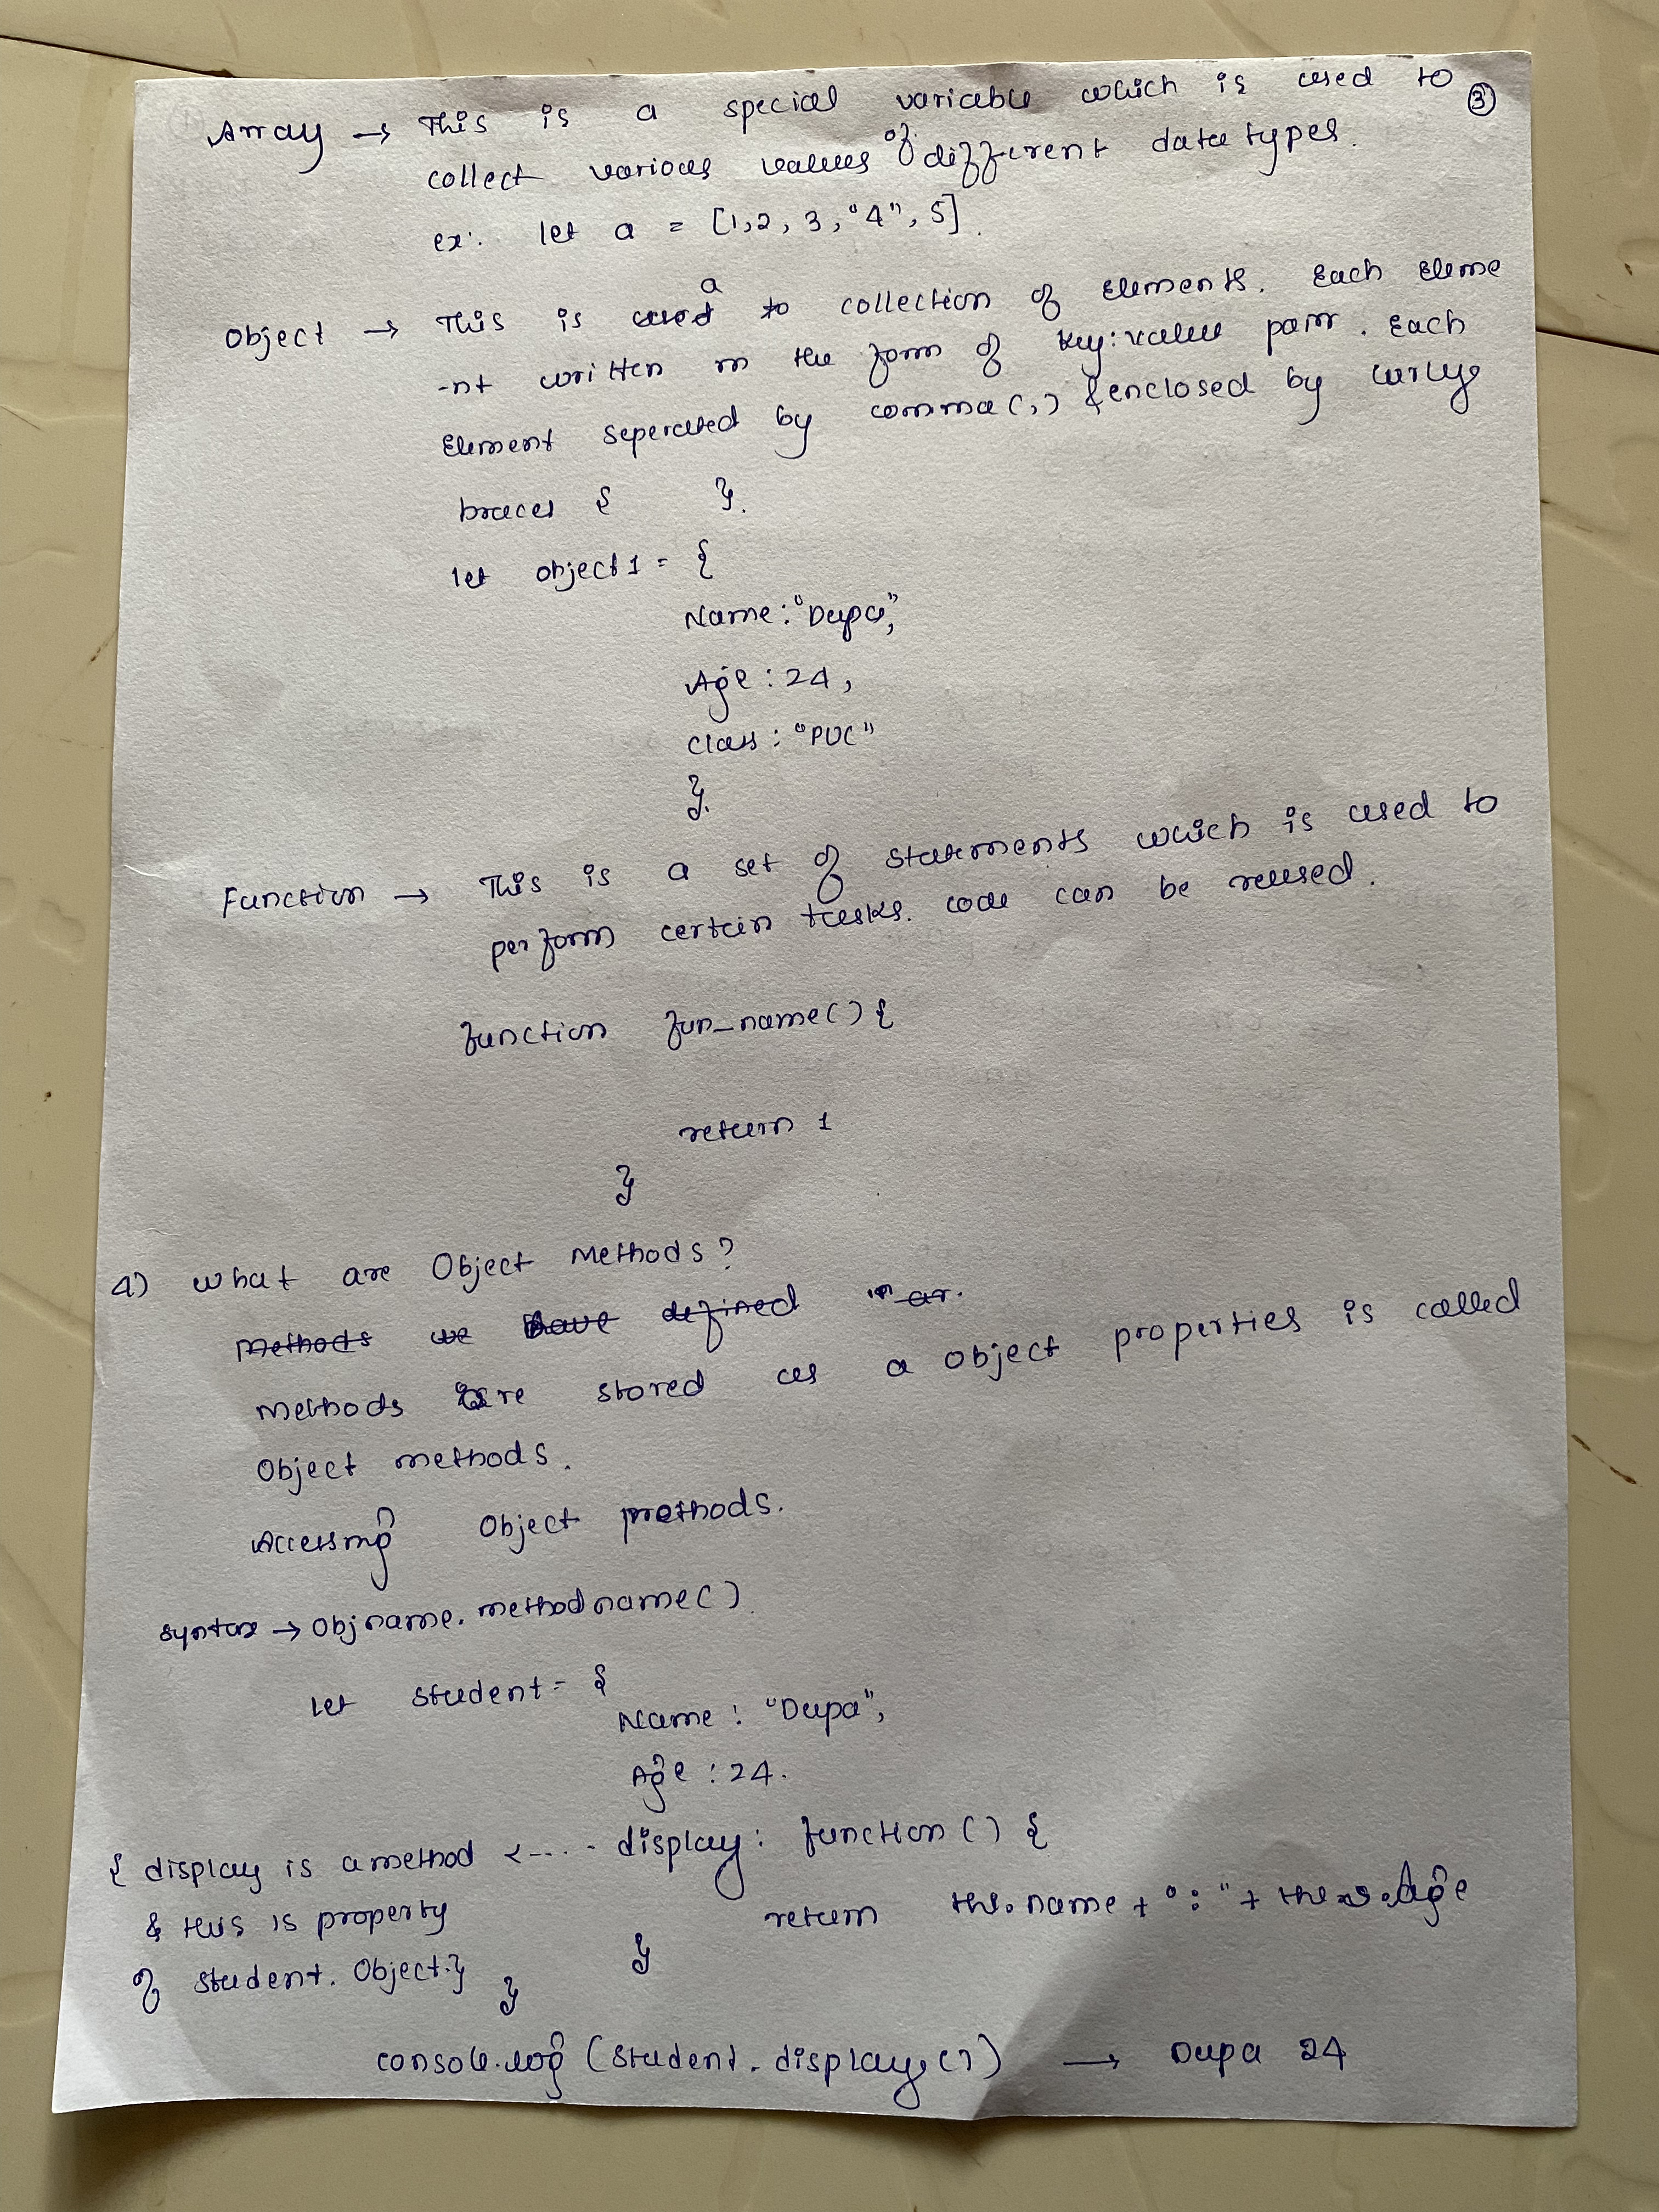 Array → This is a special variable which is used to ③
collect various values of different data types.
ex: let a = [1,2, 3, "4", 5].
Object → This is a to collection of Elements. Each Eleme
-nt written in the form of key:value pair. Each
Element seperated by comma(,) & enclosed by curly
braces { }.
let object1 = {
Name: "Dupa",
Age : 24,
class : "PUC"
}.
Function → This is a set of statements which is used to
perform certain tasks. code can be reused.
function fun_name() {
return 1
}
4) What are Object Methods?
Methods we have defined in ar.
Methods are stored as a object properties is called
Object methods.
Accessing Object methods.
syntax → Objname.methodname().
let student = {
Name : "Dupa",
Age : 24.
{ display is a method <---- display: function () {
& this is property return this.name + " : " + this.Age
of student. Object.} } }
console.log (student.display()) → Dupa 24